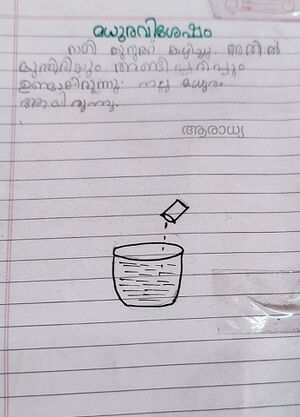 മധുരവിശേഷം
റാഗി കുറുക്ക് കുടിച്ചു. അതിൽ
മുന്തിരിയും അണ്ടിപ്പരിപ്പും
ഉണ്ടായിരുന്നു. നല്ല മധുരം
ആയിരുന്നു.
ആരാധ്യ